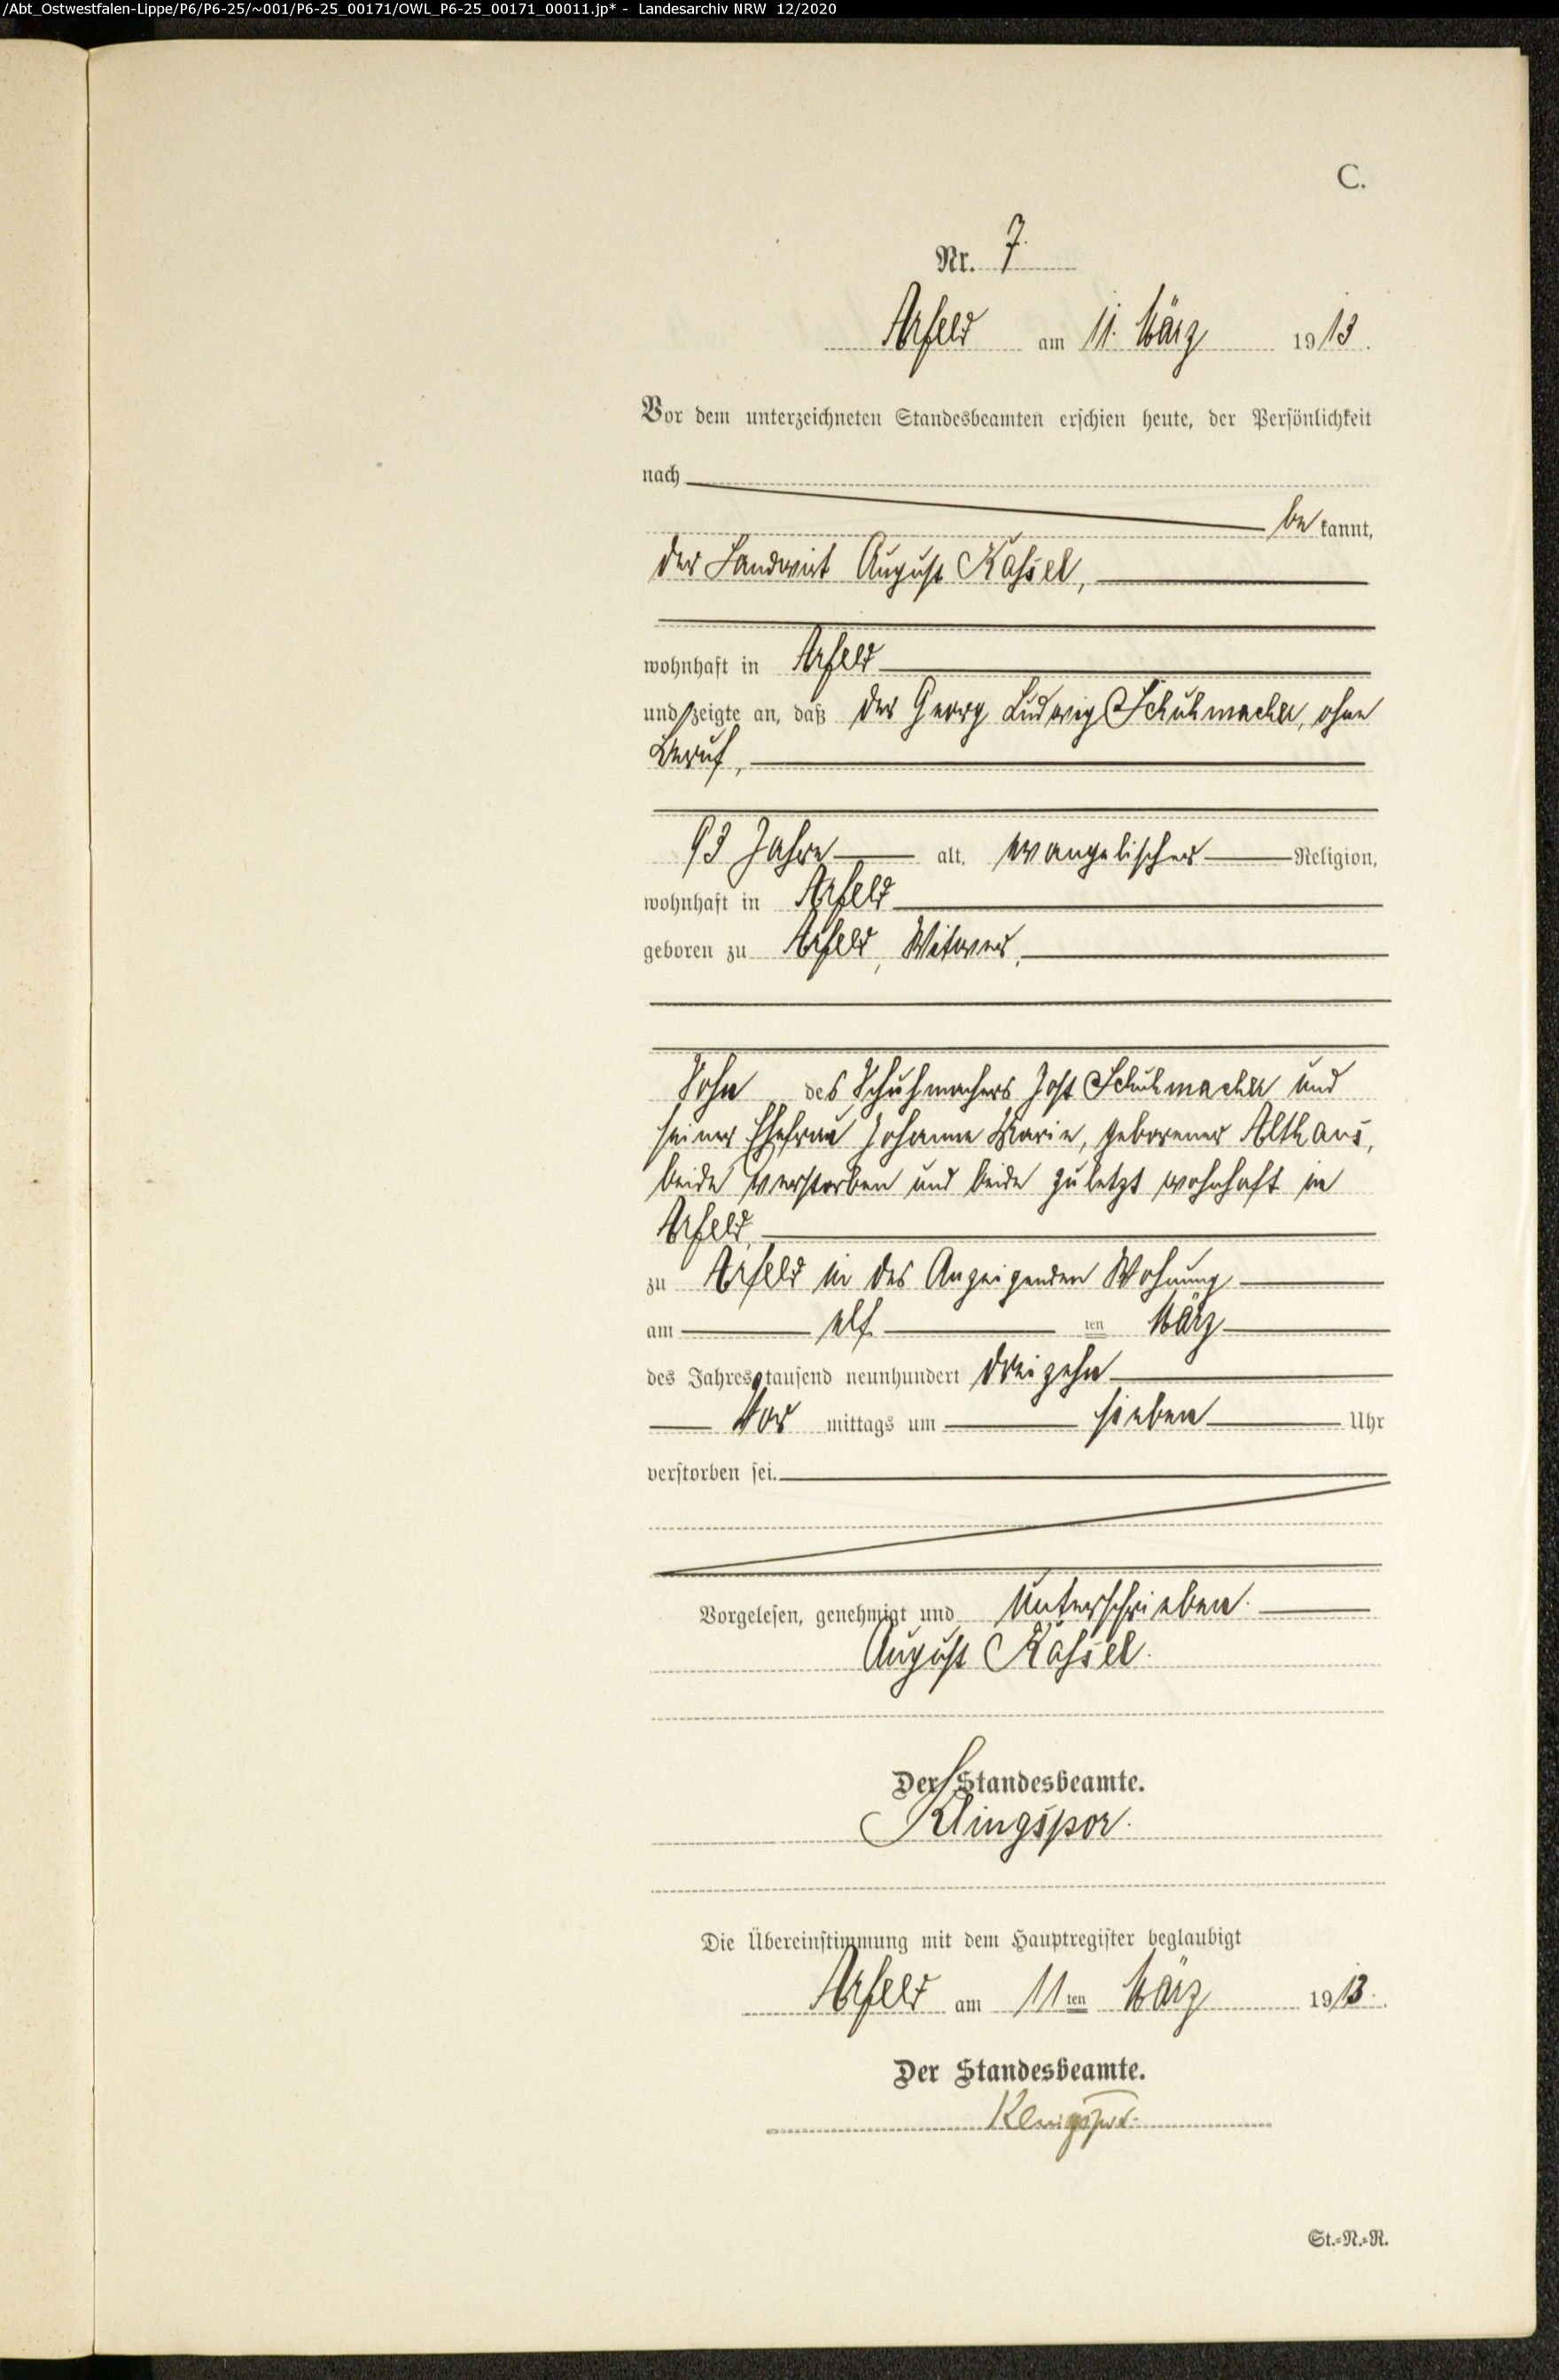 /Abt_Ostwestfalen-Lippe/P6/P6-25/~001/P6-25_00171/OWL_P6-25_00171_00011.jp* - Landesarchiv NRW 12/2020
C.
Nr. 7
Arfeld am 11. März 1913.
Vor dem unterzeichneten Standesbeamten erschien heute, der Persönlichkeit
nach
bekannt,
der Landwirt August Kassel,
wohnhaft in Arfeld
und zeigte an, daß der Georg Ludwig Schuhmacher, ohne
Beruf,
93 Jahre alt, evangelischer Religion,
wohnhaft in Arfeld
geboren zu Arfeld, Witwer,
Sohn des Schuhmachers Jost Schuhmacher und
seiner Ehefrau Johanne Marie, geborener Althaus,
beide verstorben und beide zuletzt wohnhaft in
Arfeld,
zu Arfeld in des Anzeigenden Wohnung
am elf ten März
des Jahres tausend neunhundert dreizehn
Vor mittags um sieben Uhr
verstorben sei.
Vorgelesen, genehmigt und unterschrieben.
August Kassel.
Der Standesbeamte.
Klingspor.
Die Übereinstimmung mit dem Hauptregister beglaubigt
Arfeld am 11ten März 1913.
Der Standesbeamte.
Klingspor.
St.=N.=R.